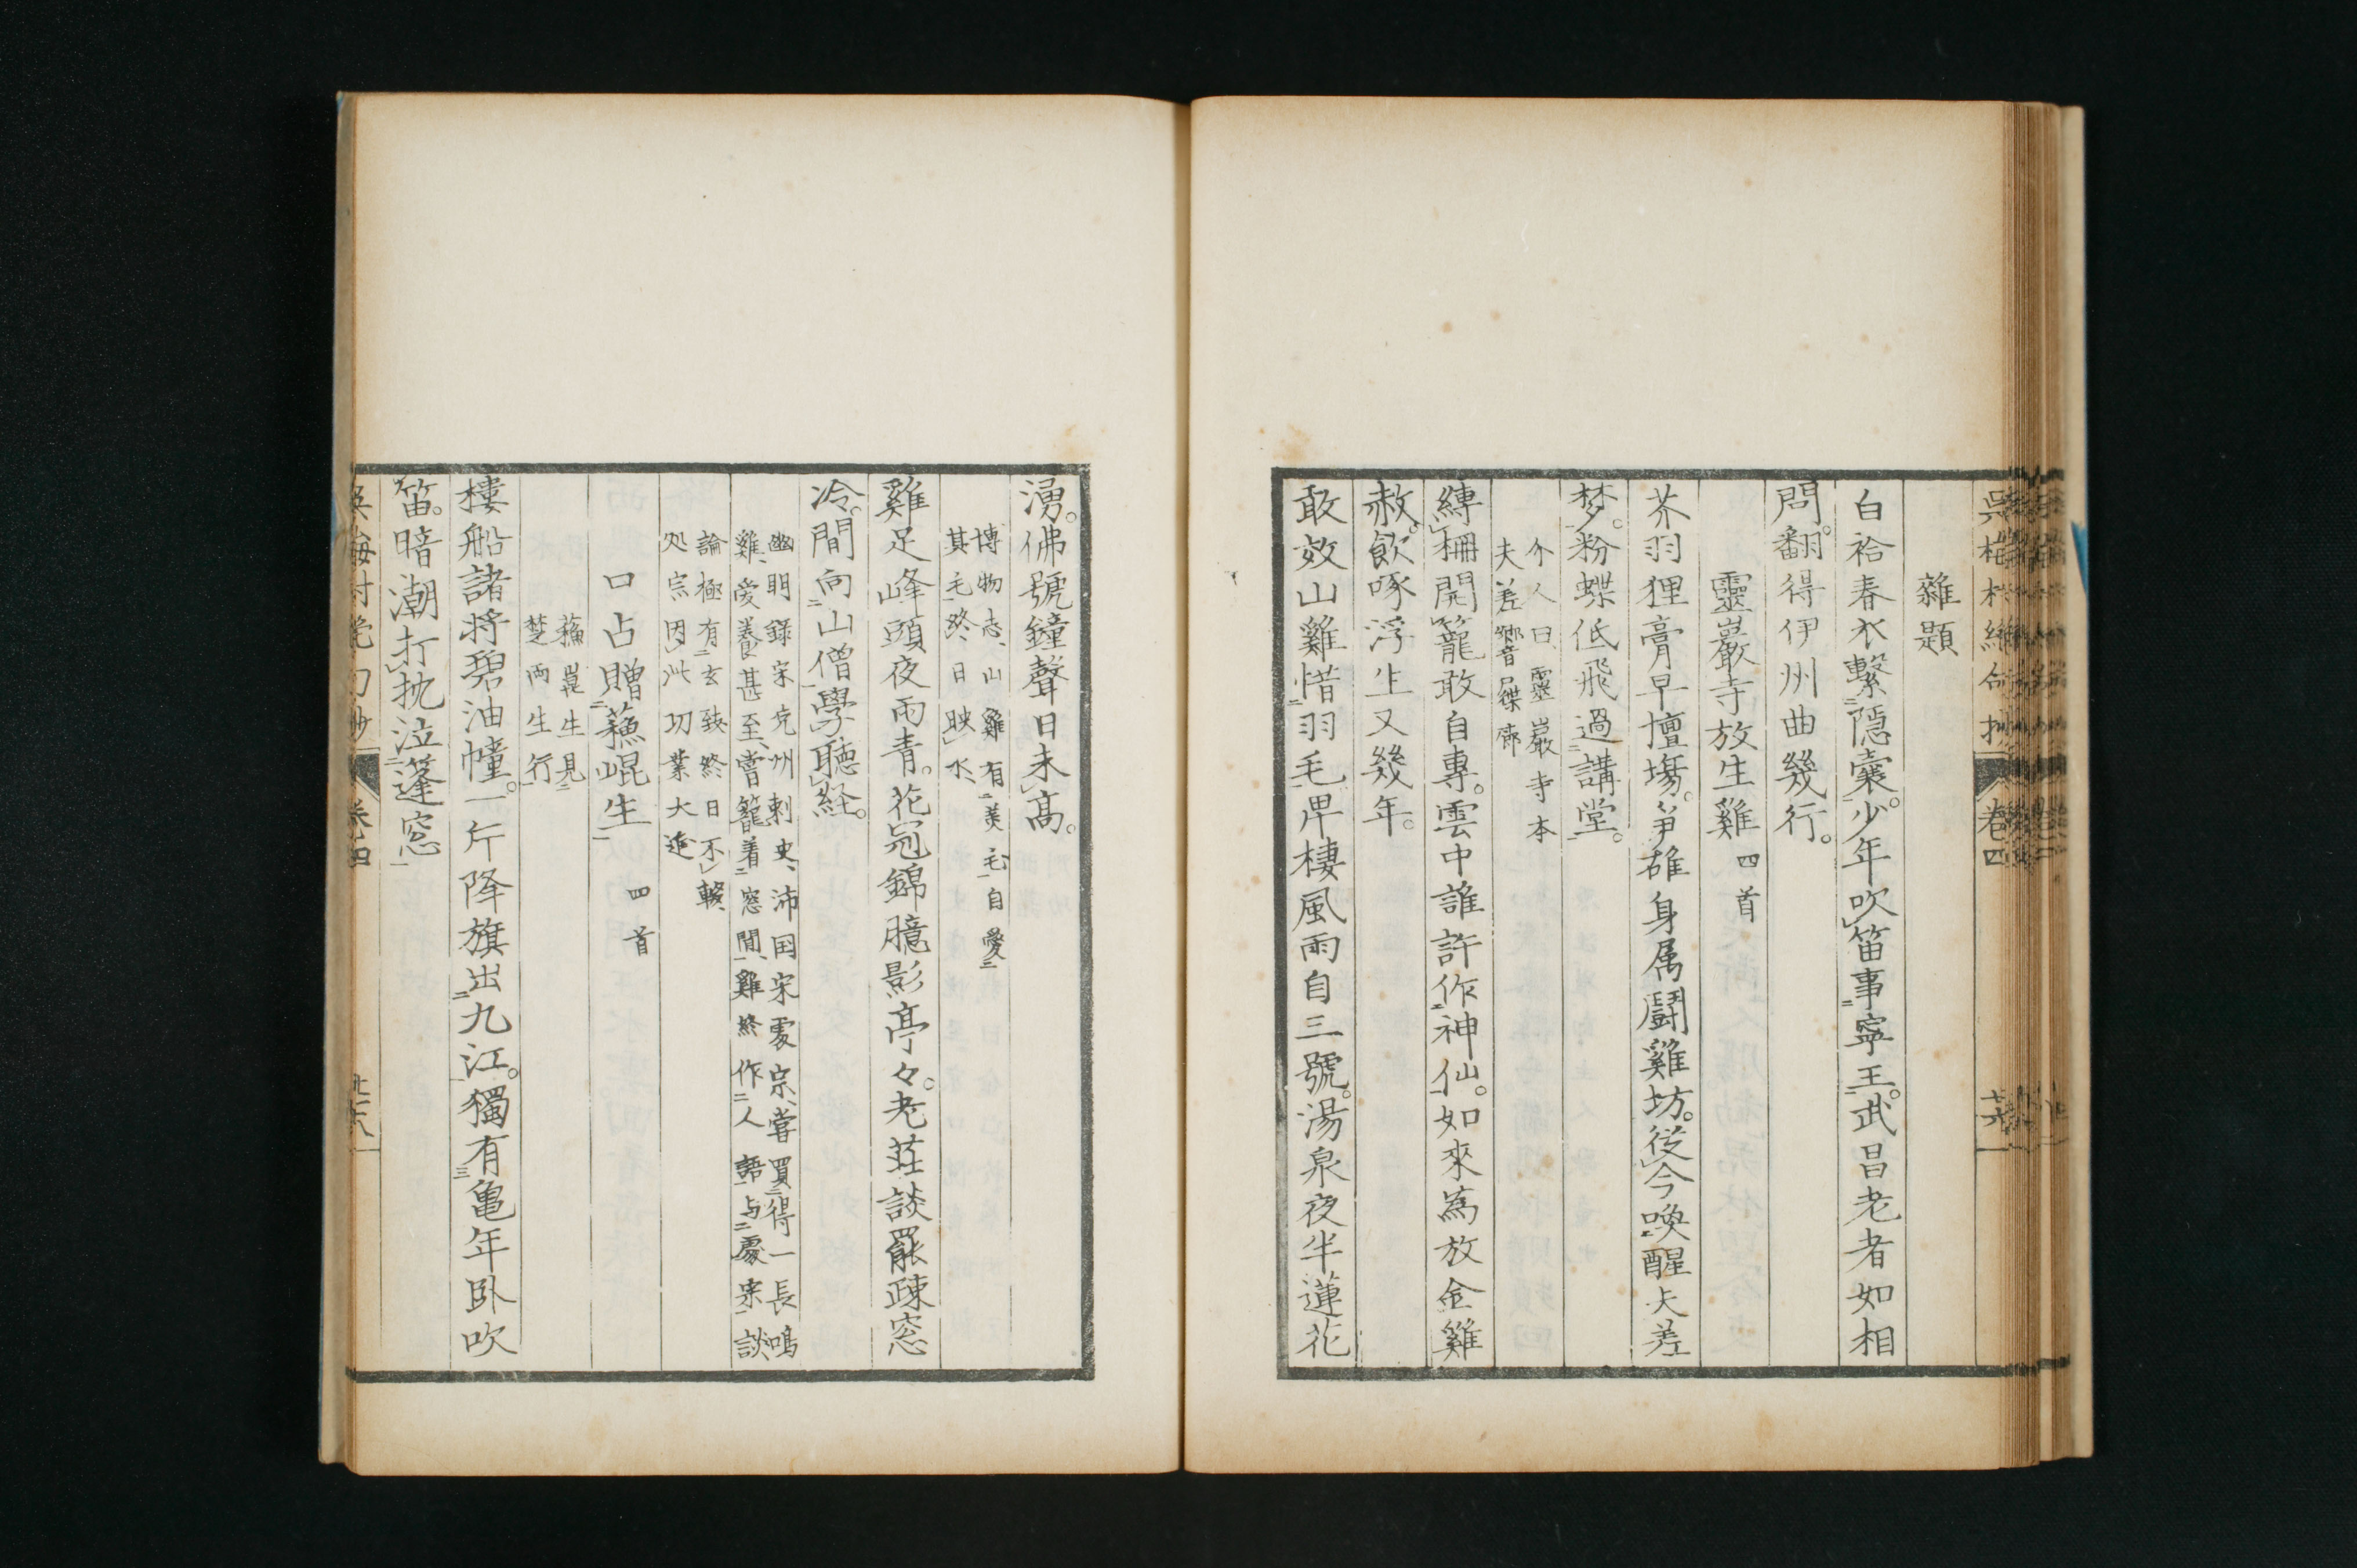 雜題
白袷春衣繫隱囊。少年吹笛事寧王。武昌老者如相
問。翻得伊州曲幾行。
靈巖寺放生雞 四首
芥羽狸膏早壇塲。爭雄身属鬪雞坊。從今喚醒夫差
梦。粉蝶低飛過講堂。
介人曰、靈巖寺本
夫差響屧廊
縛柵開籠敢自專。雲中誰許作神仙。如來為放金雞
赦。飲啄浮生又幾年。
敢效山雞惜羽毛。卑棲風雨自三號。湯泉夜半蓮花
湧。佛號鐘聲日未高。
博物志、山雞有美毛自愛
其毛、終日映水、
雞足峰頭夜雨青。花冠錦臆影亭々。老莊談罷疎窓
冷。間向山僧學聽経。
幽明錄宋兗州刺史、沛国宋䖏宗、嘗買得一長鳴
雞、愛養甚至、嘗籠着窓間、雞終作人語、与䖏宗談
論極有玄致終日不輟、
処宗因此功業大進
口占贈蘓崐生 四首
蘓崑生見
楚両生行
樓船諸将碧油幢。一片降旗出九江。獨有亀年卧吹
笛。暗潮打枕泣篷窓
卷四